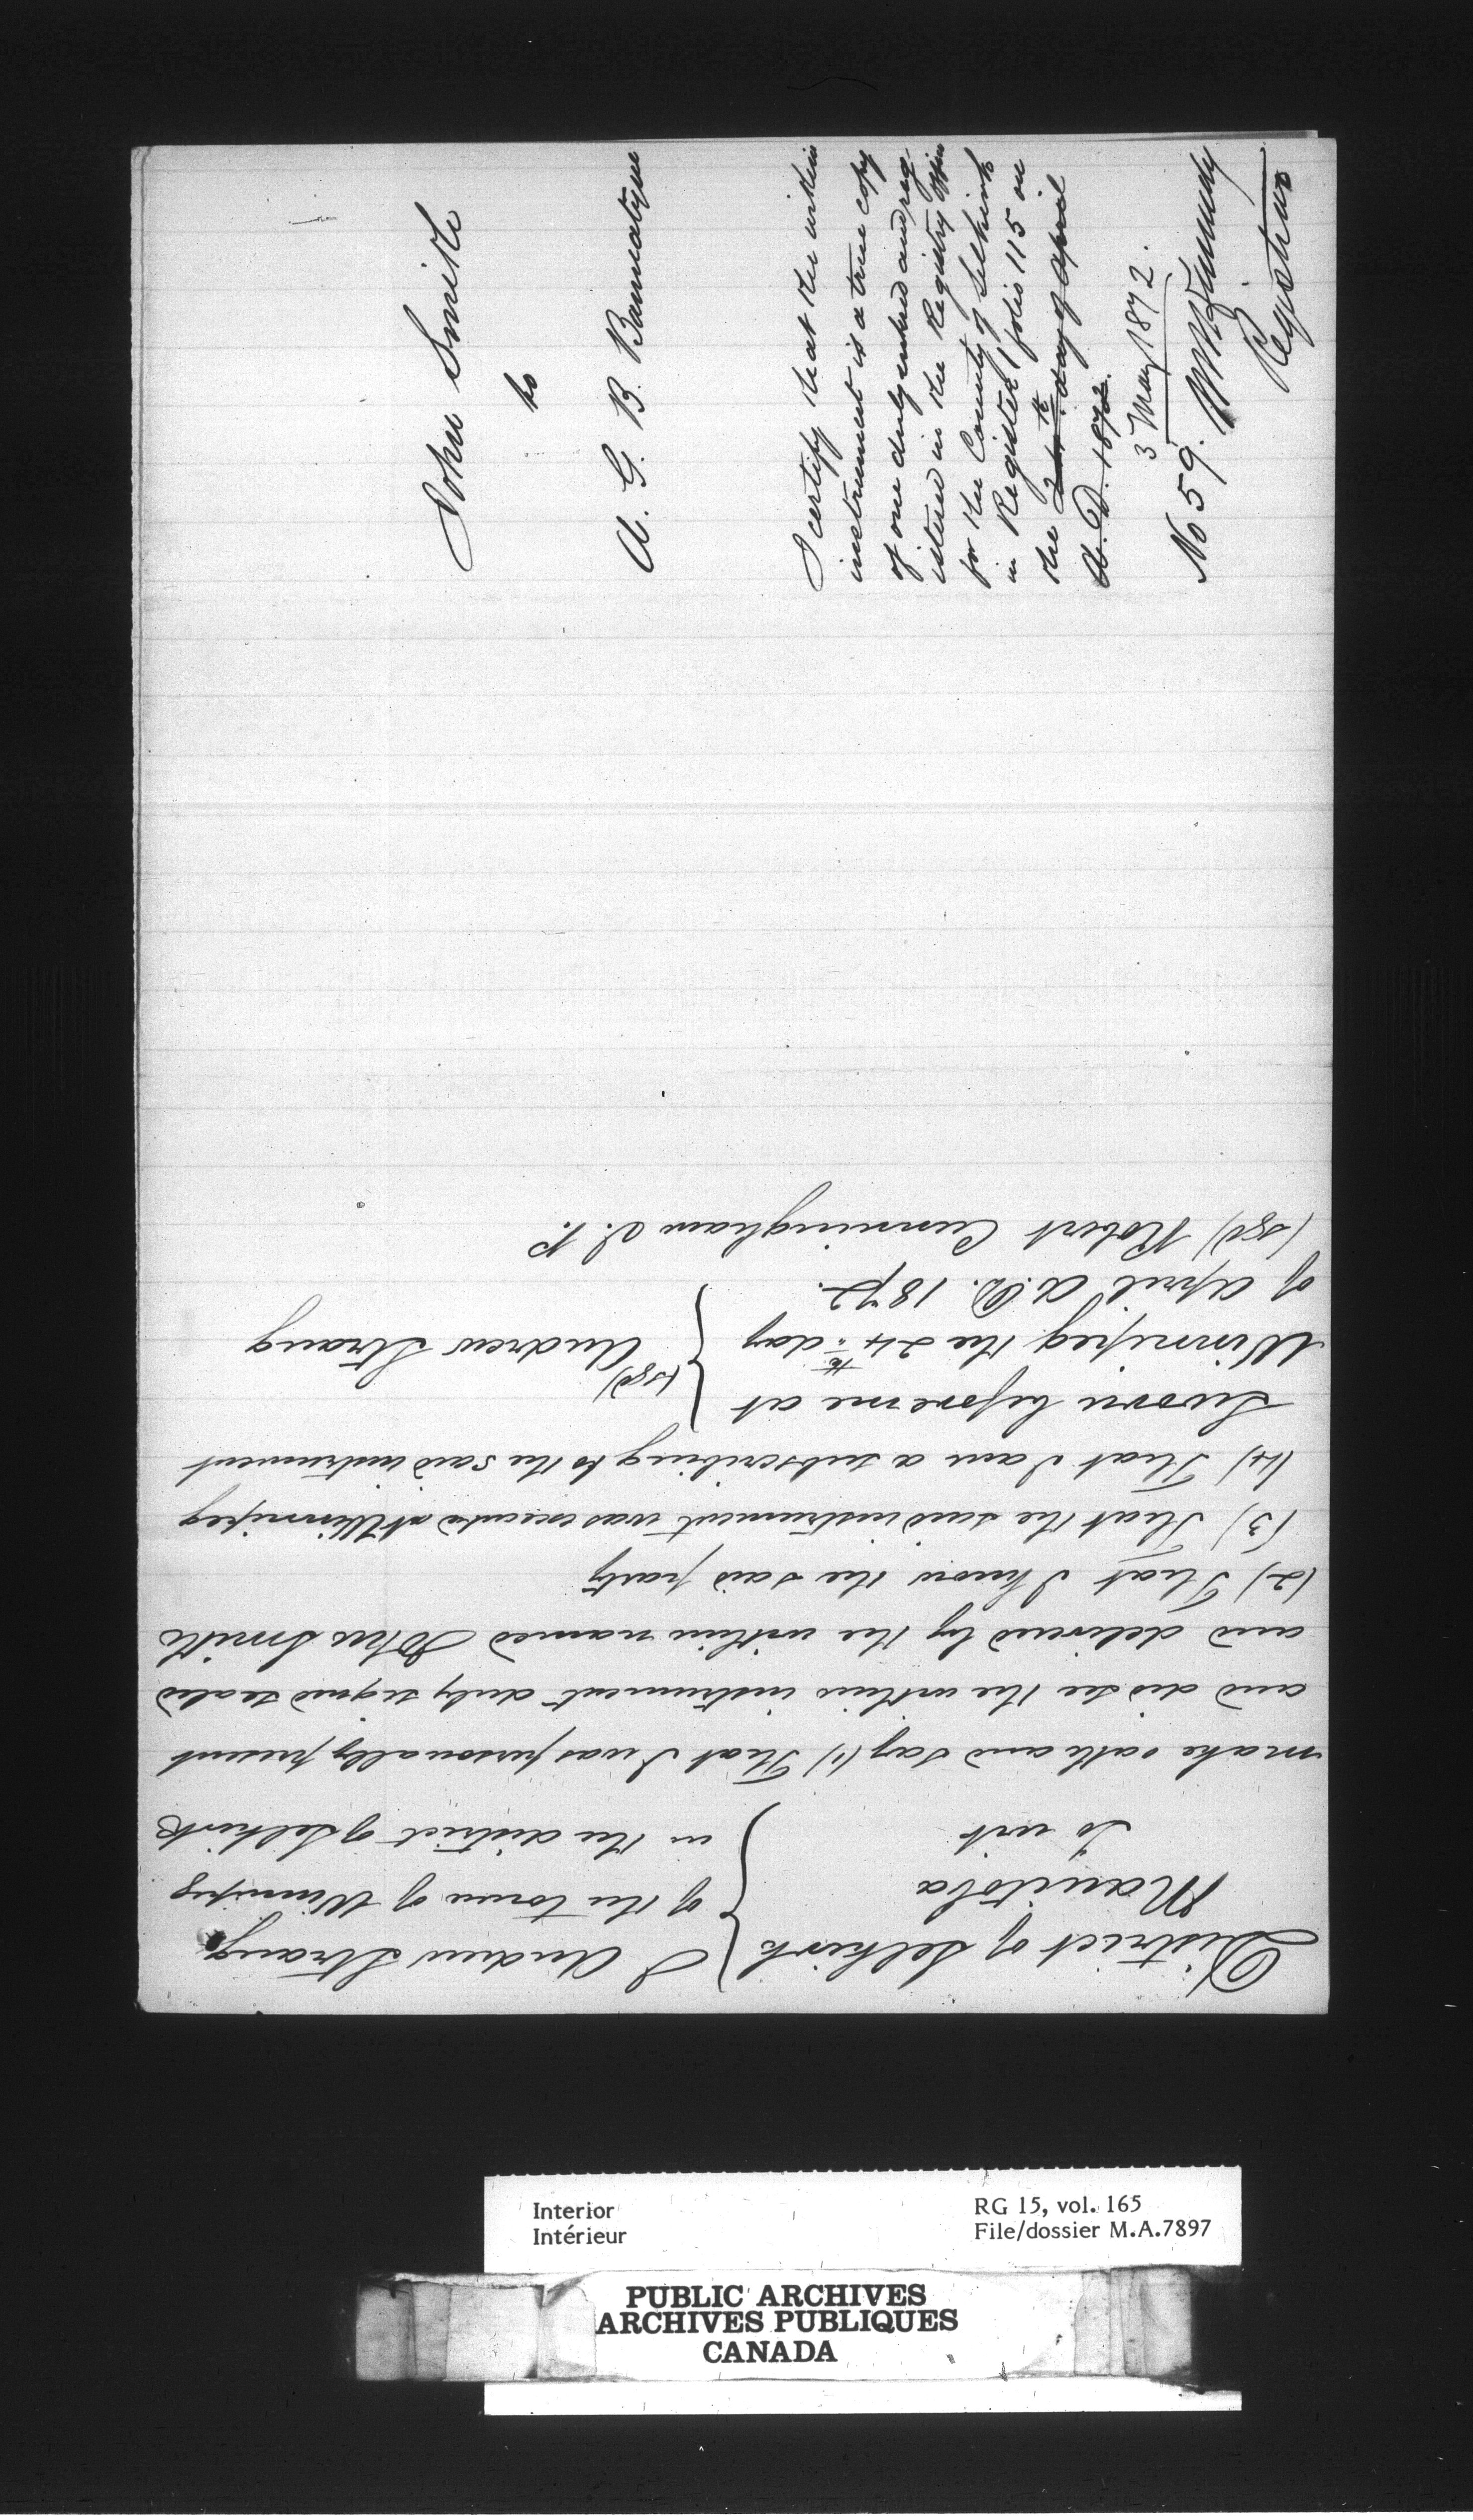 John Smith
to
A. G. B. Bannatyne
I certify that the within
instrument is a true copy
of one duly entered and reg
istered in the Registry Office
for the County of Selkirk
in Register 1 folio 115 on
the 24th day of April
A.D. 1872.
3 May 1872.
No 59.
Registrar
District of Selkirk } I Andrew Strang
Manitoba } of the town of Winnipeg
To wit } in the district of Selkirk
make oath and say (1) That I was personally present
and did see the within instrument duly signed sealed
and delivered by the within named John Smith
(2) That I know the said party
(3) That the said instrument was executed at Winnipeg
(4) That I am a subscribing to the said instrument
Sworn before me at
Winnipeg the 24th day } (sgd) Andrew Strang
of April A.D. 1872.
(sgd) Robert Cunningham J. P.
Interior
Intérieur
RG 15, vol. 165
File/dossier M.A.7897
PUBLIC ARCHIVES
ARCHIVES PUBLIQUES
CANADA